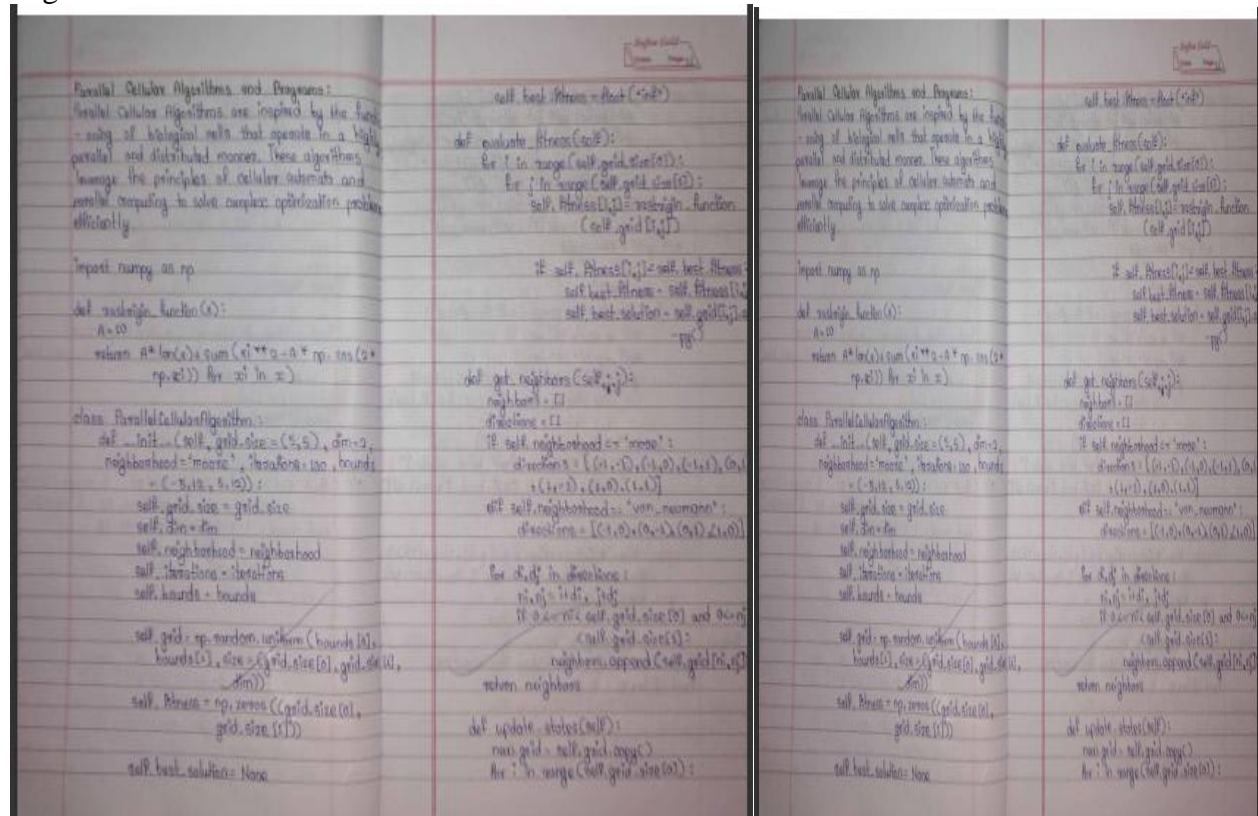 Parallel Cellular Algorithms and Programs:
Parallel Cellular Algorithms are inspired by the functi
-oning of biological cells that operate in a highly
parallel and distributed manner. These algorithms
leverage the principles of cellular automata and
parallel computing to solve complex optimization problems
efficiently
import numpy as np
def rastrigin_function(x):
A = 10
return A* len(x) + sum(xi**2 - A * np.cos(2*
np.xi)) for xi in x)
class ParallelCellularAlgorithm:
def __init__(self, grid_size = (5,5), dim=2,
neighborhood = 'moore', iterations = 100, bounds
= (-5.12, 5.12)):
self.grid_size = grid_size
self.dim = dim
self.neighborhood = neighborhood
self.iterations = iterations
self.bounds = bounds
self.grid = np.random.uniform(bounds[0],
bounds[1], size = (grid_size[0], grid_size[1],
dim))
self.fitness = np.zeros((grid_size[0],
grid_size[1]))
self.best_solution = None
self.best_fitness = float("inf")
def evaluate_fitness(self):
for i in range(self.grid_size[0]):
for j in range(self.grid_size[1]):
self.fitness[i,j] = rastrigin_function
(self.grid[i,j])
if self.fitness[i,j] < self.best_fitness:
self.best_fitness = self.fitness[i,
self.best_solution = self.grid[i,j].c
-py()
def get_neighbors(self,i,j):
neighbors = []
directions = []
if self.neighborhood == 'moore':
directions = [(-1,-1),(-1,0),(-1,1),(0,
,(1,-1),(1,0),(1,1)]
elif self.neighborhood == 'von_neumann':
directions = [(-1,0),(0,-1),(0,1),(1,0)]
for di,dj in directions:
ni,nj = i+di, j+dj
if 0 <= ni < self.grid_size[0] and 0<=nj
< self.grid_size[1]:
neighbors.append(self.grid[ni,nj]
return neighbors
def update_states(self):
new_grid = self.grid.copy()
for i in range(self.grid_size[0]):
Parallel Cellular Algorithms and Programs:
Parallel Cellular Algorithms are inspired by the functi
-oning of biological cells that operate in a highly
parallel and distributed manner. These algorithms
leverage the principles of cellular automata and
parallel computing to solve complex optimization problems
efficiently
import numpy as np
def rastrigin_function(x):
A = 10
return A* len(x) + sum(xi**2 - A * np.cos(2*
np.xi)) for xi in x)
class ParallelCellularAlgorithm:
def __init__(self, grid_size = (5,5), dim=2,
neighborhood = 'moore', iterations = 100, bounds
= (-5.12, 5.12)):
self.grid_size = grid_size
self.dim = dim
self.neighborhood = neighborhood
self.iterations = iterations
self.bounds = bounds
self.grid = np.random.uniform(bounds[0],
bounds[1], size = (grid_size[0], grid_size[1],
dim))
self.fitness = np.zeros((grid_size[0],
grid_size[1]))
self.best_solution = None
self.best_fitness = float("inf")
def evaluate_fitness(self):
for i in range(self.grid_size[0]):
for j in range(self.grid_size[1]):
self.fitness[i,j] = rastrigin_function
(self.grid[i,j])
if self.fitness[i,j] < self.best_fitness:
self.best_fitness = self.fitness[i,
self.best_solution = self.grid[i,j].c
-py()
def get_neighbors(self,i,j):
neighbors = []
directions = []
if self.neighborhood == 'moore':
directions = [(-1,-1),(-1,0),(-1,1),(0,
,(1,-1),(1,0),(1,1)]
elif self.neighborhood == 'von_neumann':
directions = [(-1,0),(0,-1),(0,1),(1,0)]
for di,dj in directions:
ni,nj = i+di, j+dj
if 0 <= ni < self.grid_size[0] and 0<=nj
< self.grid_size[1]:
neighbors.append(self.grid[ni,nj]
return neighbors
def update_states(self):
new_grid = self.grid.copy()
for i in range(self.grid_size[0]):